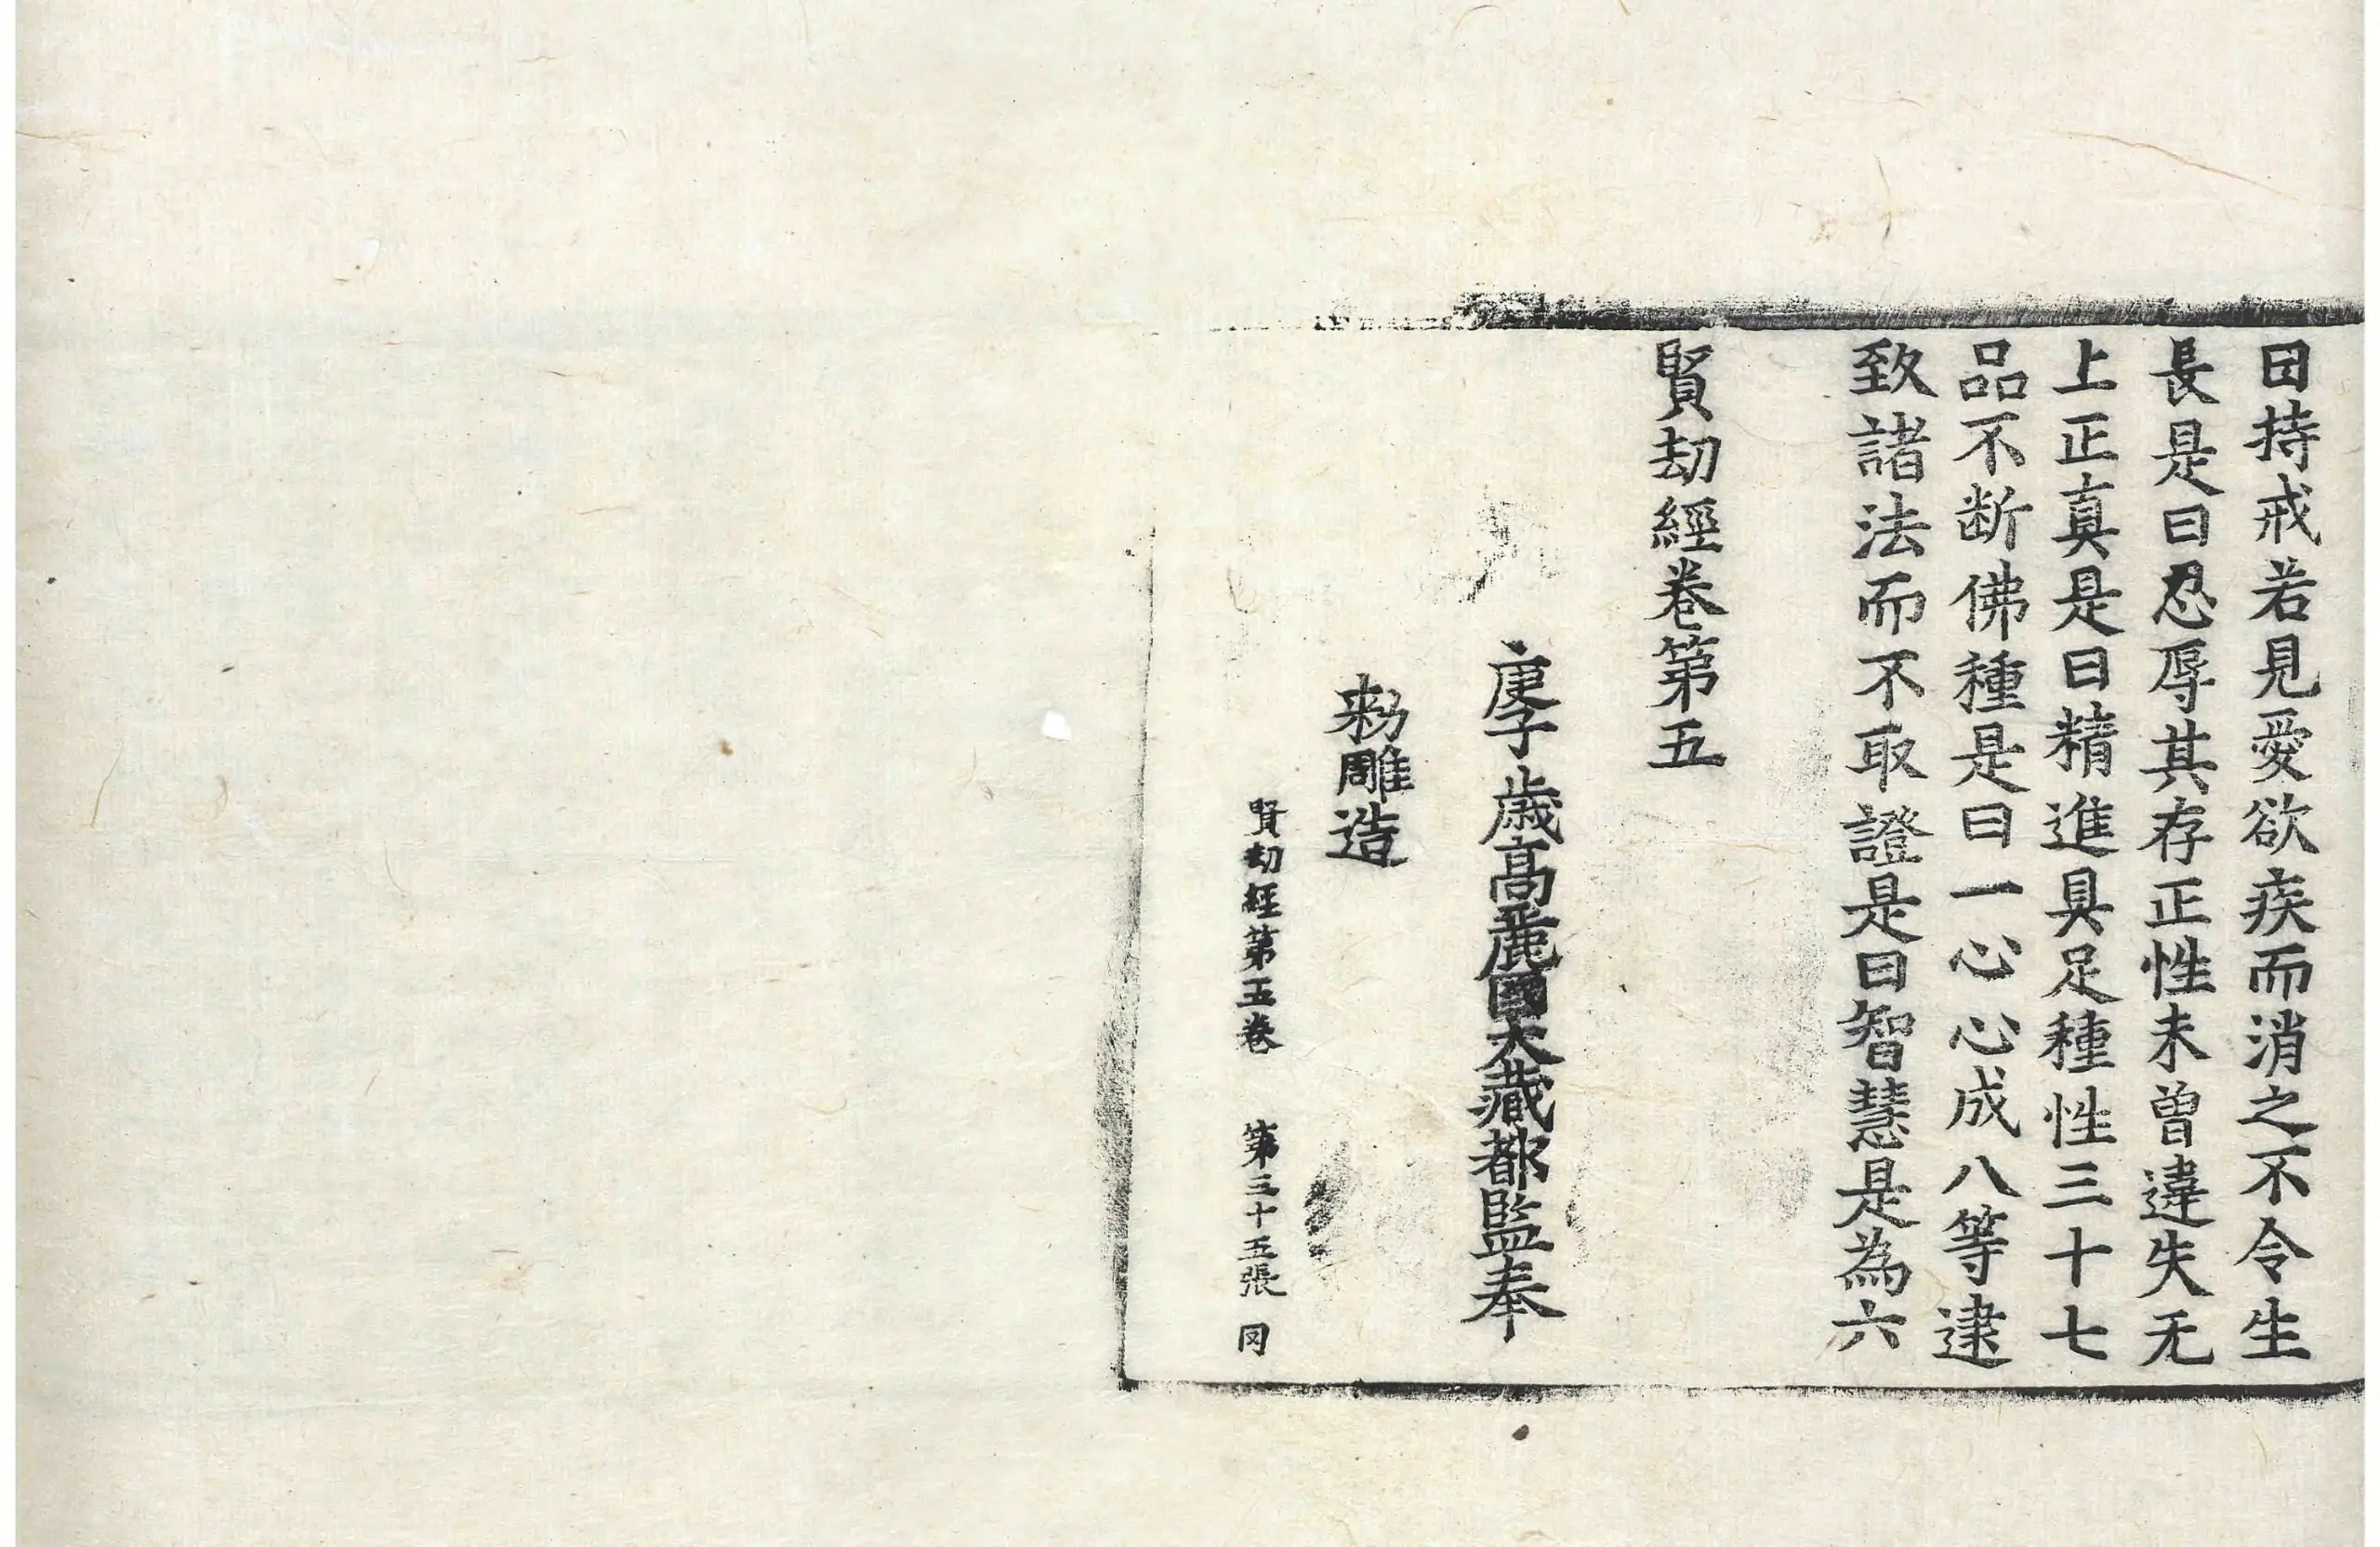 曰持戒若見愛欲疾而消之不令生
長是曰忍辱其存正性未曾違失无
上正真是曰精進具足種性三十七
品不断佛種是曰一心心成八等逮
致諸法而不取證是曰智慧是為六
賢劫經卷第五
庚子歲高麗國大藏都監奉
勑雕造
賢劫經第五卷 第三十五張 同